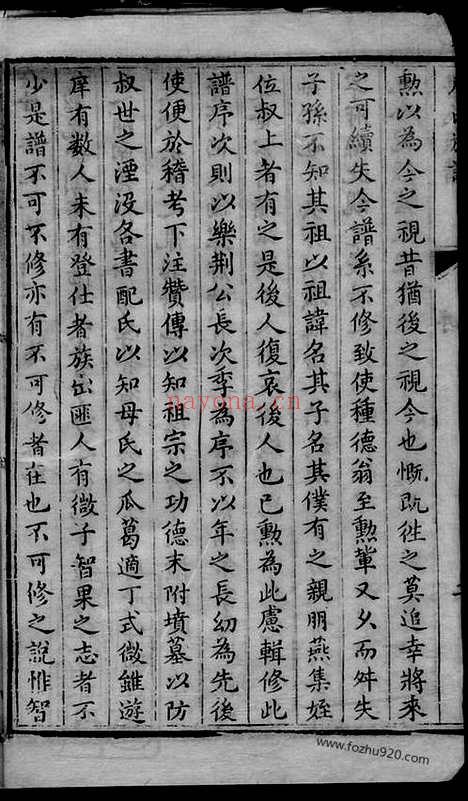 勲以為今之視昔猶後之視今也慨既徃之莫追幸將來
之可續失今譜系不修致使種德翁至勲輩又久而舛失
子孫不知其祖以祖諱名其子名其僕有之親朋燕集姪
位叔上者有之是後人復哀後人也已勲為此慮輯修此
譜序次則以樂荆公長次季為序不以年之長幼為先後
使便於稽考下注贊傳以知祖宗之功德末附墳墓以防
叔世之湮没各書配氏以知母氏之瓜葛適丁式微雖遊
庠有数人未有登仕者族出匪人有微子智果之志者不
少是譜不可不修亦有不可修者在也不可修之說惟智
nayona.cn
www.fozhu920.com